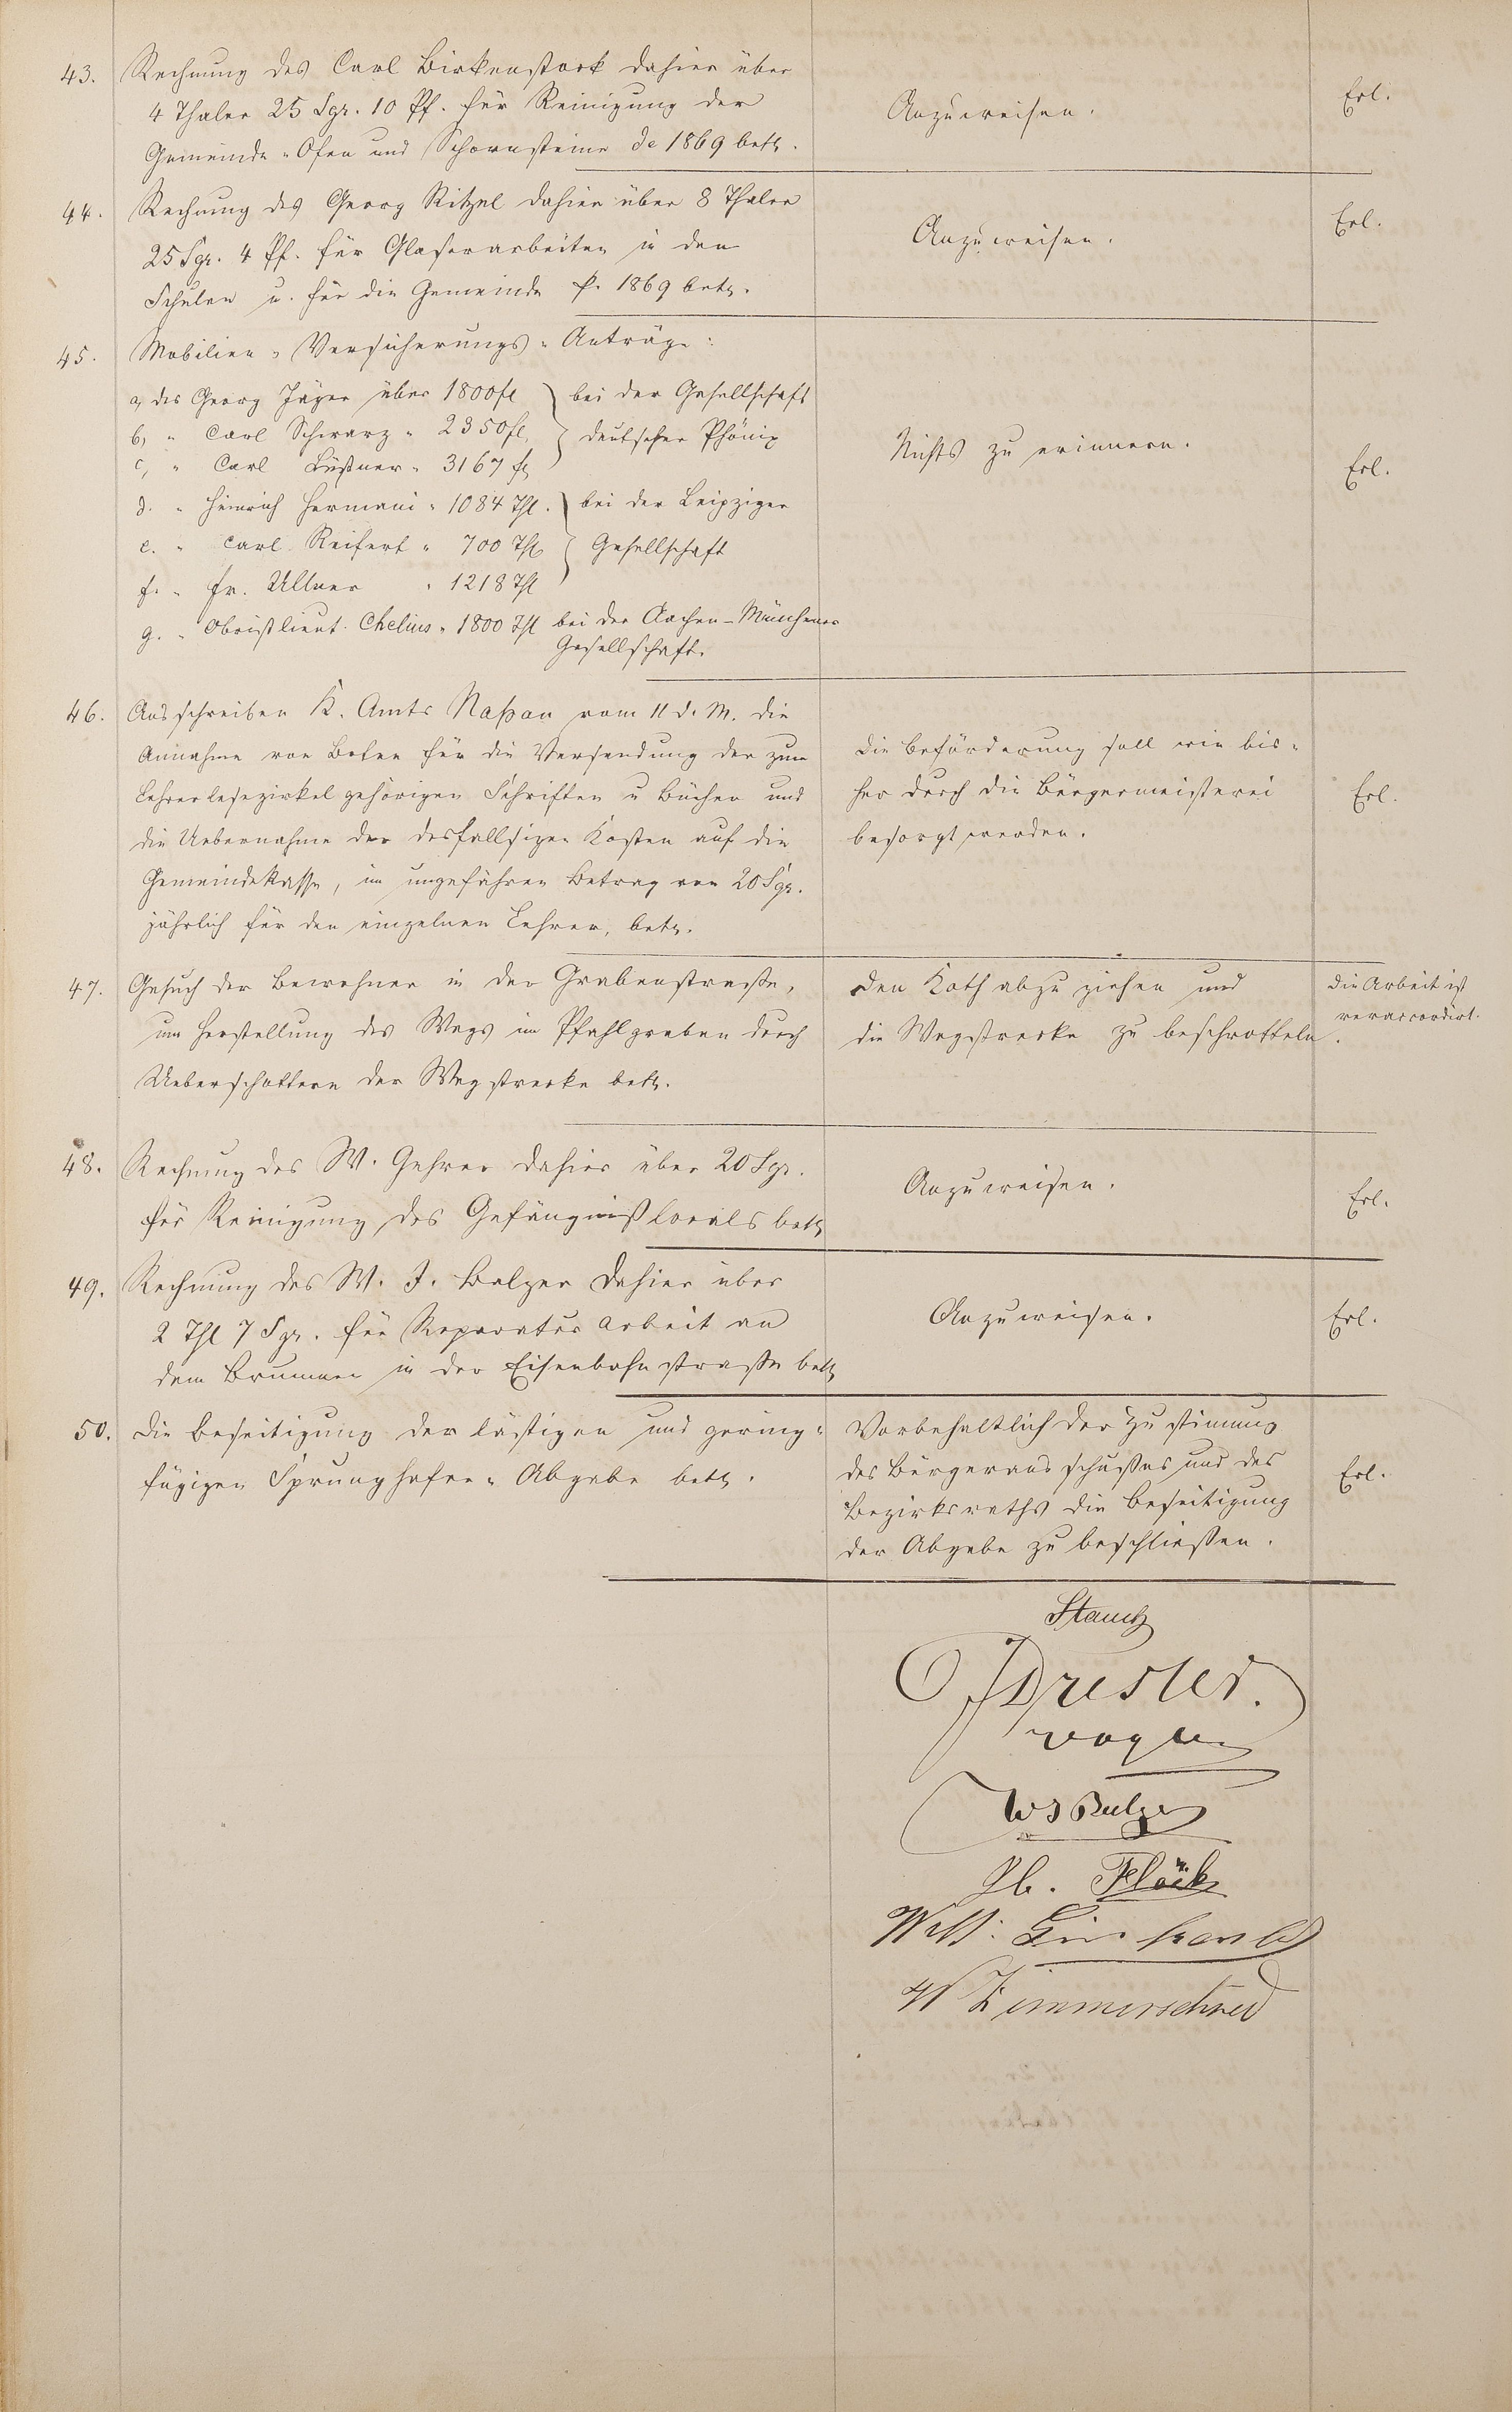 43. Rechnung des Carl Birkenstock dahier über
4 Thaler 25 Sgr. 10 Pf. für Reinigung der
Gemeinde-Ofen und Schornsteine de 1869 betr.
Anzuweisen.
Erl.
44. Rechnung des Georg Ritzel dahier über 8 Thaler
25 Sgr. 4 Pf. für Glaserarbeiten in den
Schulen u. für die Gemeinde p. 1869 betr.
Anzuweisen.
Erl.
45. Mobilien-Versicherungs-Anträge:
a, des Georg Jäger über 1800 fl } bei der Gesellschaft
b, " Carl Schwarz " 2350 fl. } deutscher Phönix
c, " Carl Büßner " 3167 fl
d. " Heinrich Hermani " 1084 Thl. } bei der Leipziger
e. " Carl Reifert " 700 Thl } Gesellschaft
f. " Fr. Ullner " 1218 Thl
g. " Obristlieut. Chelius " 1800 Thl bei der Aachen-Münchener
Gesellschaft.
Nichts zu erinnern.
Erl.
46. Ausschreiben K. Amts Naßau vom 11 d. M. die
Annahme von Boten für die Versendung der zum
Lehrerlesezirkel gehörigen Schriften u Bücher und
die Uebernahme der desfallsigen Kosten auf die
Gemeindekasse, im ungefähren Betrag von 20 Sgr.
jährlich für den einzelnen Lehrer, betr.
Die Beförderung soll wie bis-
her durch die Bürgermeisterei
besorgt werden.
Erl.
47. Gesuch der Bewohner in der Grabenstraße,
um Herstellung des Wegs im Pfahlgraben durch
Ueberschottern der Wegstrecke betr.
Den Koth abzuziehen und
die Wegstrecke zu beschrotteln.
Die Arbeit ist
veraccordirt.
48. Rechnung des W. Gehrer dahier über 20 Sgr.
für Reinigung des Gefängnißlocals betr
Anzuweisen.
Erl.
49. Rechnung des W. J. Balzer dahier über
2 Thl 7 Sgr. für Reparatur Arbeit an
dem Brunnen in der Eisenbahnstraße betr
Anzuweisen.
Erl.
50. Die Beseitigung der lästigen und gering-
fügigen Sprunghafer-Abgabe betr.
Vorbehaltlich der Zustimung
des Bürgerausschußes und des
Bezirksraths die Beseitigung
der Abgabe zu beschließen.
Erl.
Stauch
Dresler.
WJ Balzer
Jb. Flöck
Wilh.
W Zimmerschied